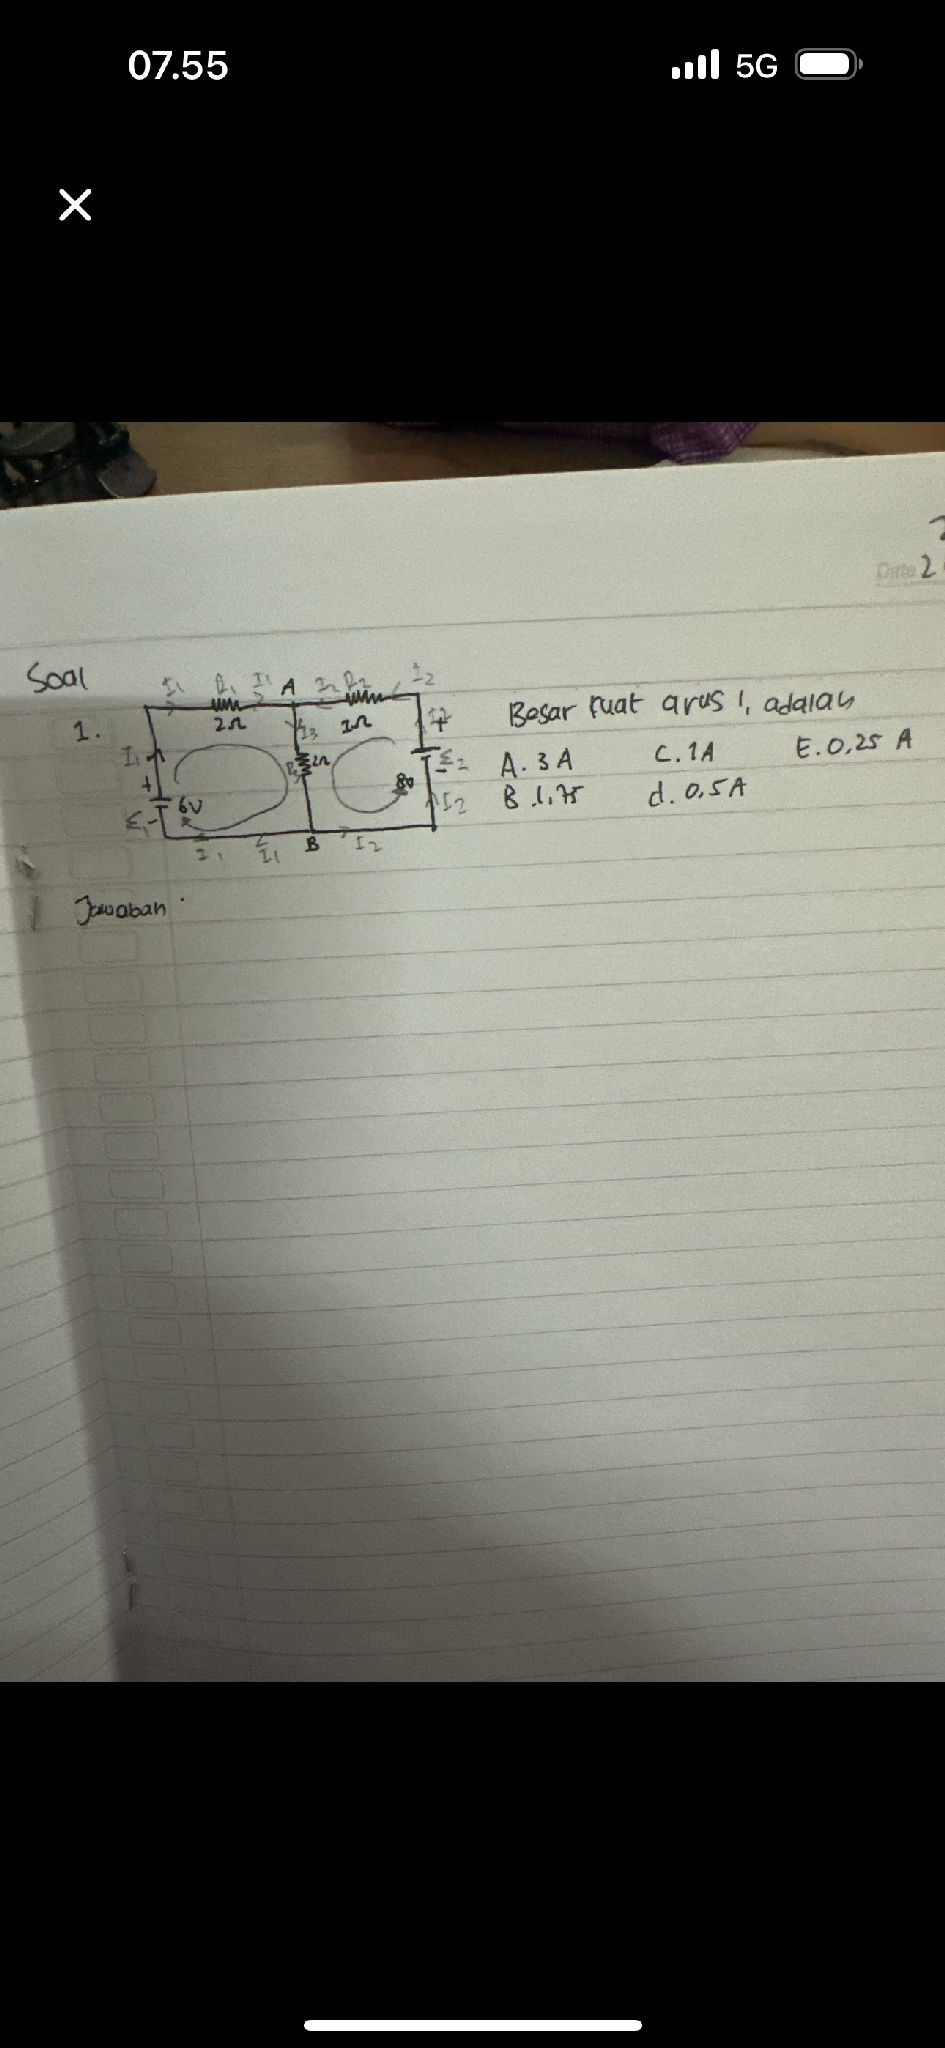 07.55
5G
Date 2
Soal
1.
I1 R1 I1 A I2 R2 I2
2Ω I3 1Ω I2
I1 R3 2Ω + ε2
+ 6V 8V -
ε1 - I2
I1 I1 B I2
Besar kuat arus I1 adalah
A. 3 A C. 1A E. 0,25 A
B 1,75 d. 0,5 A
Jawaban :